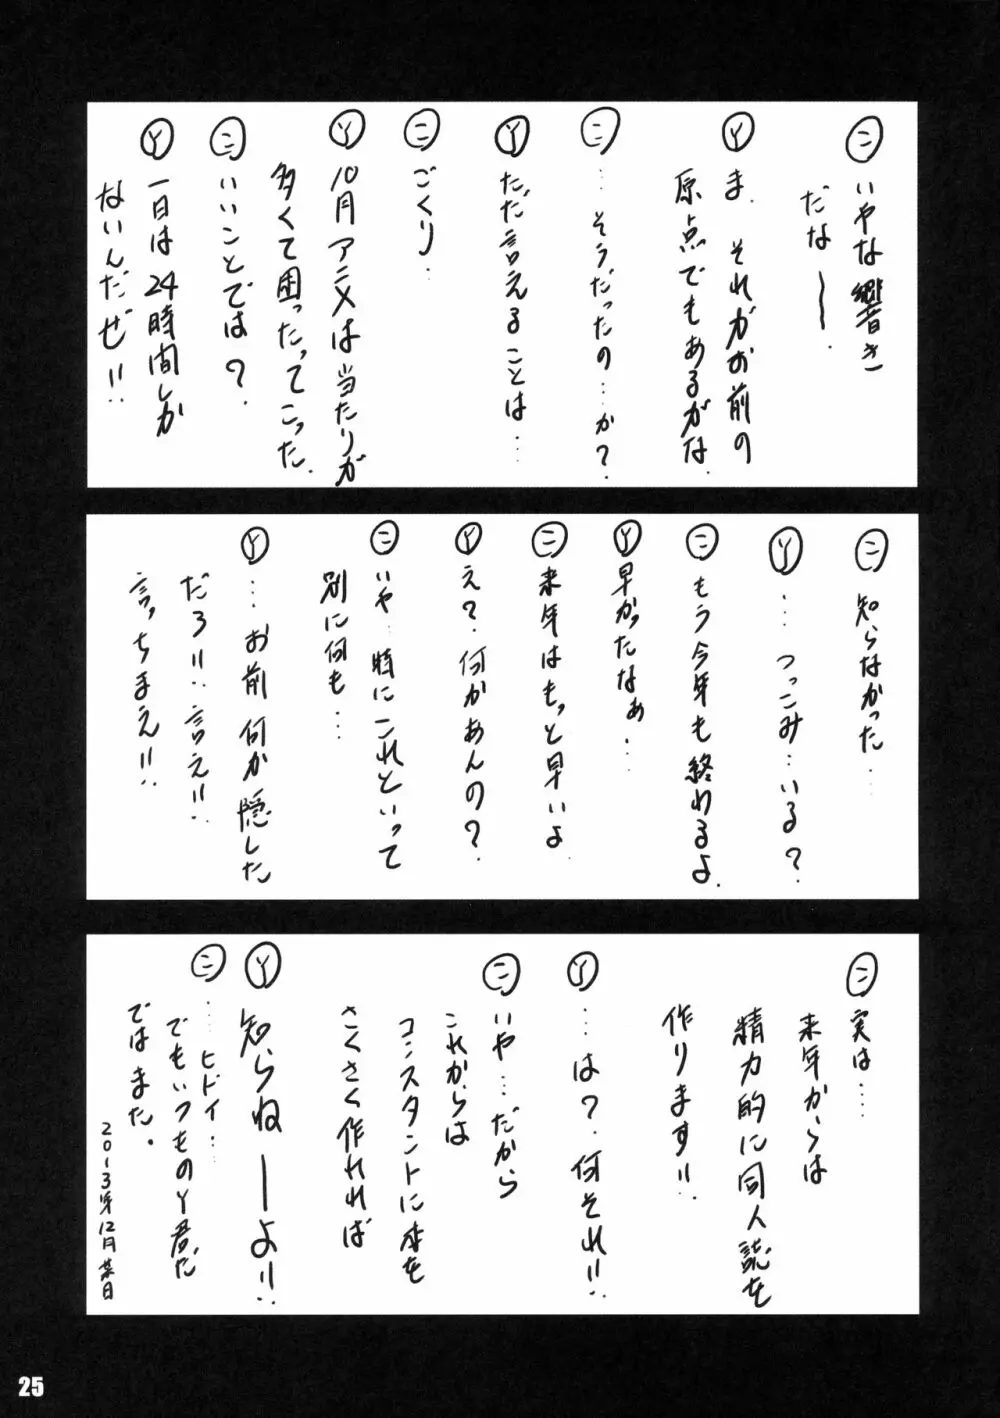 ㊁ いやな響き
だな〜〜.
Ⓨ ま. それがお前の
原点でもあるがな.
㊁ …そうだったの…か?
Ⓨ ただ言えることは…
㊁ ごくり…
Ⓨ 10月アニメは当たりが
多くて困ったってこった.
㊁ いいことでは?
Ⓨ 一日は24時間しか
ないんだぜ!!
㊁ 知らなかった…
Ⓨ …つっこみ…いる?
㊁ もう今年も終わるよ.
Ⓨ 早かったなぁ…
㊁ 来年はもっと早いよ.
Ⓨ え?何かあんの?
㊁ いや…時にこれといって
別に何も…
Ⓨ …お前何か隠した
だろ!!言え!!
言っちまえ!!
㊁ 実は…
来年からは
精力的に同人誌を
作ります!!
Ⓨ …は?何それ!!
㊁ いや…だから
これからは
コンスタントに本を
さくさく作れれば
Ⓨ 知らねーーよ!!
㊁ ……ヒドイ…
でもいつものY君だ
ではまた。
2013年12月某日
25